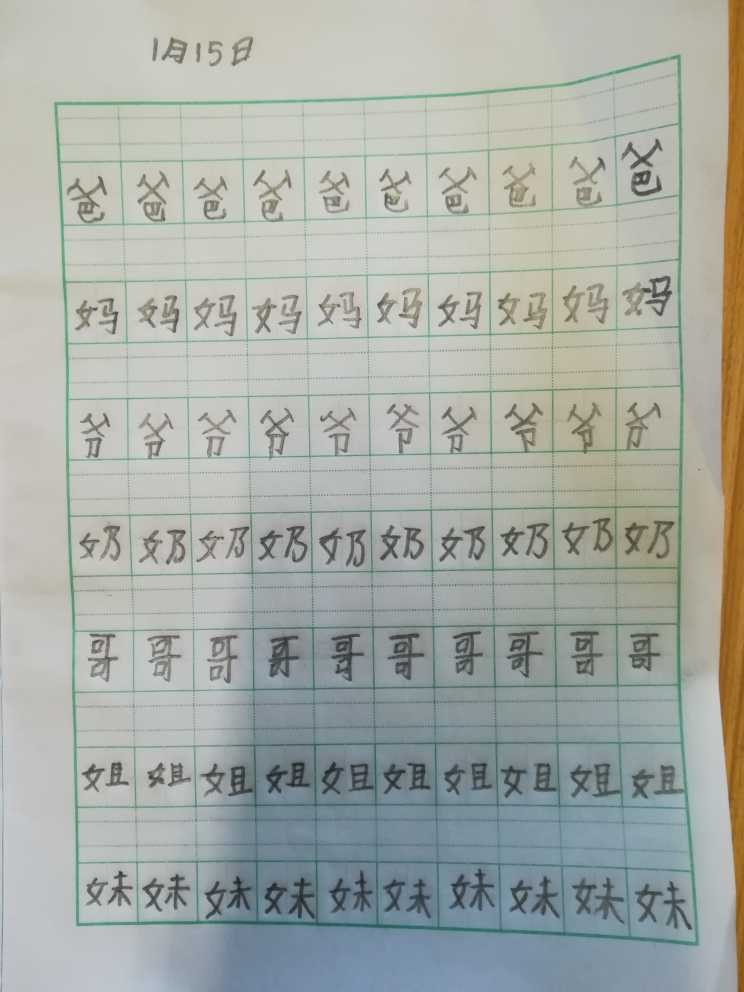 1月15日
爸爸爸爸爸爸爸爸爸爸
妈妈妈妈妈妈妈妈妈妈
爷爷爷爷爷爷爷爷爷爷
奶奶奶奶奶奶奶奶奶奶
哥哥哥哥哥哥哥哥哥哥
姐姐姐姐姐姐姐姐姐姐
妹妹妹妹妹妹妹妹妹妹